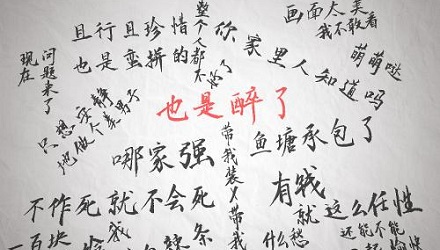 且行且珍惜
整个人都不好了
你家里人知道吗
画面太美
我不敢看
萌萌哒
也是蛮拼的
现在
问题来了
只想安静
地做个美男子
也是醉了
哪家强
带我装X带我
鱼塘承包了
不作死就不会死
有钱
就这么任性
还能不能
什么愁
一百块
我
条